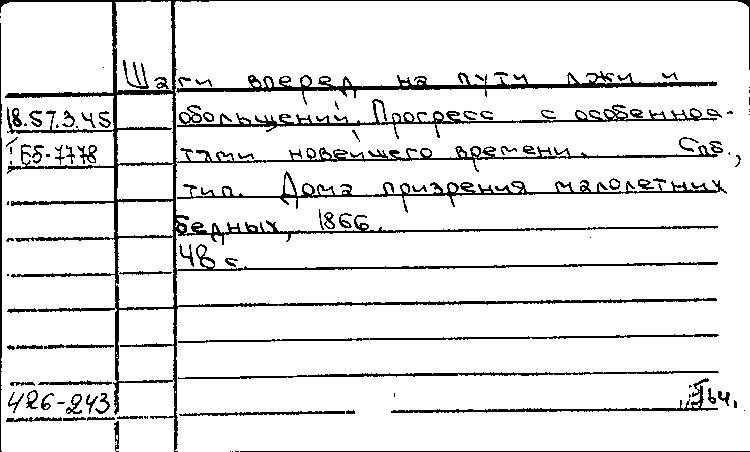 Шаги вперед на пути лжи и
18.57.3.45 обольщений. Прогресс с особеннос-
Б5-7778 тями новейшего времени. Спб.,
тип. Дома призрения малолетних
бедных, 1866.
48 с.
426-243